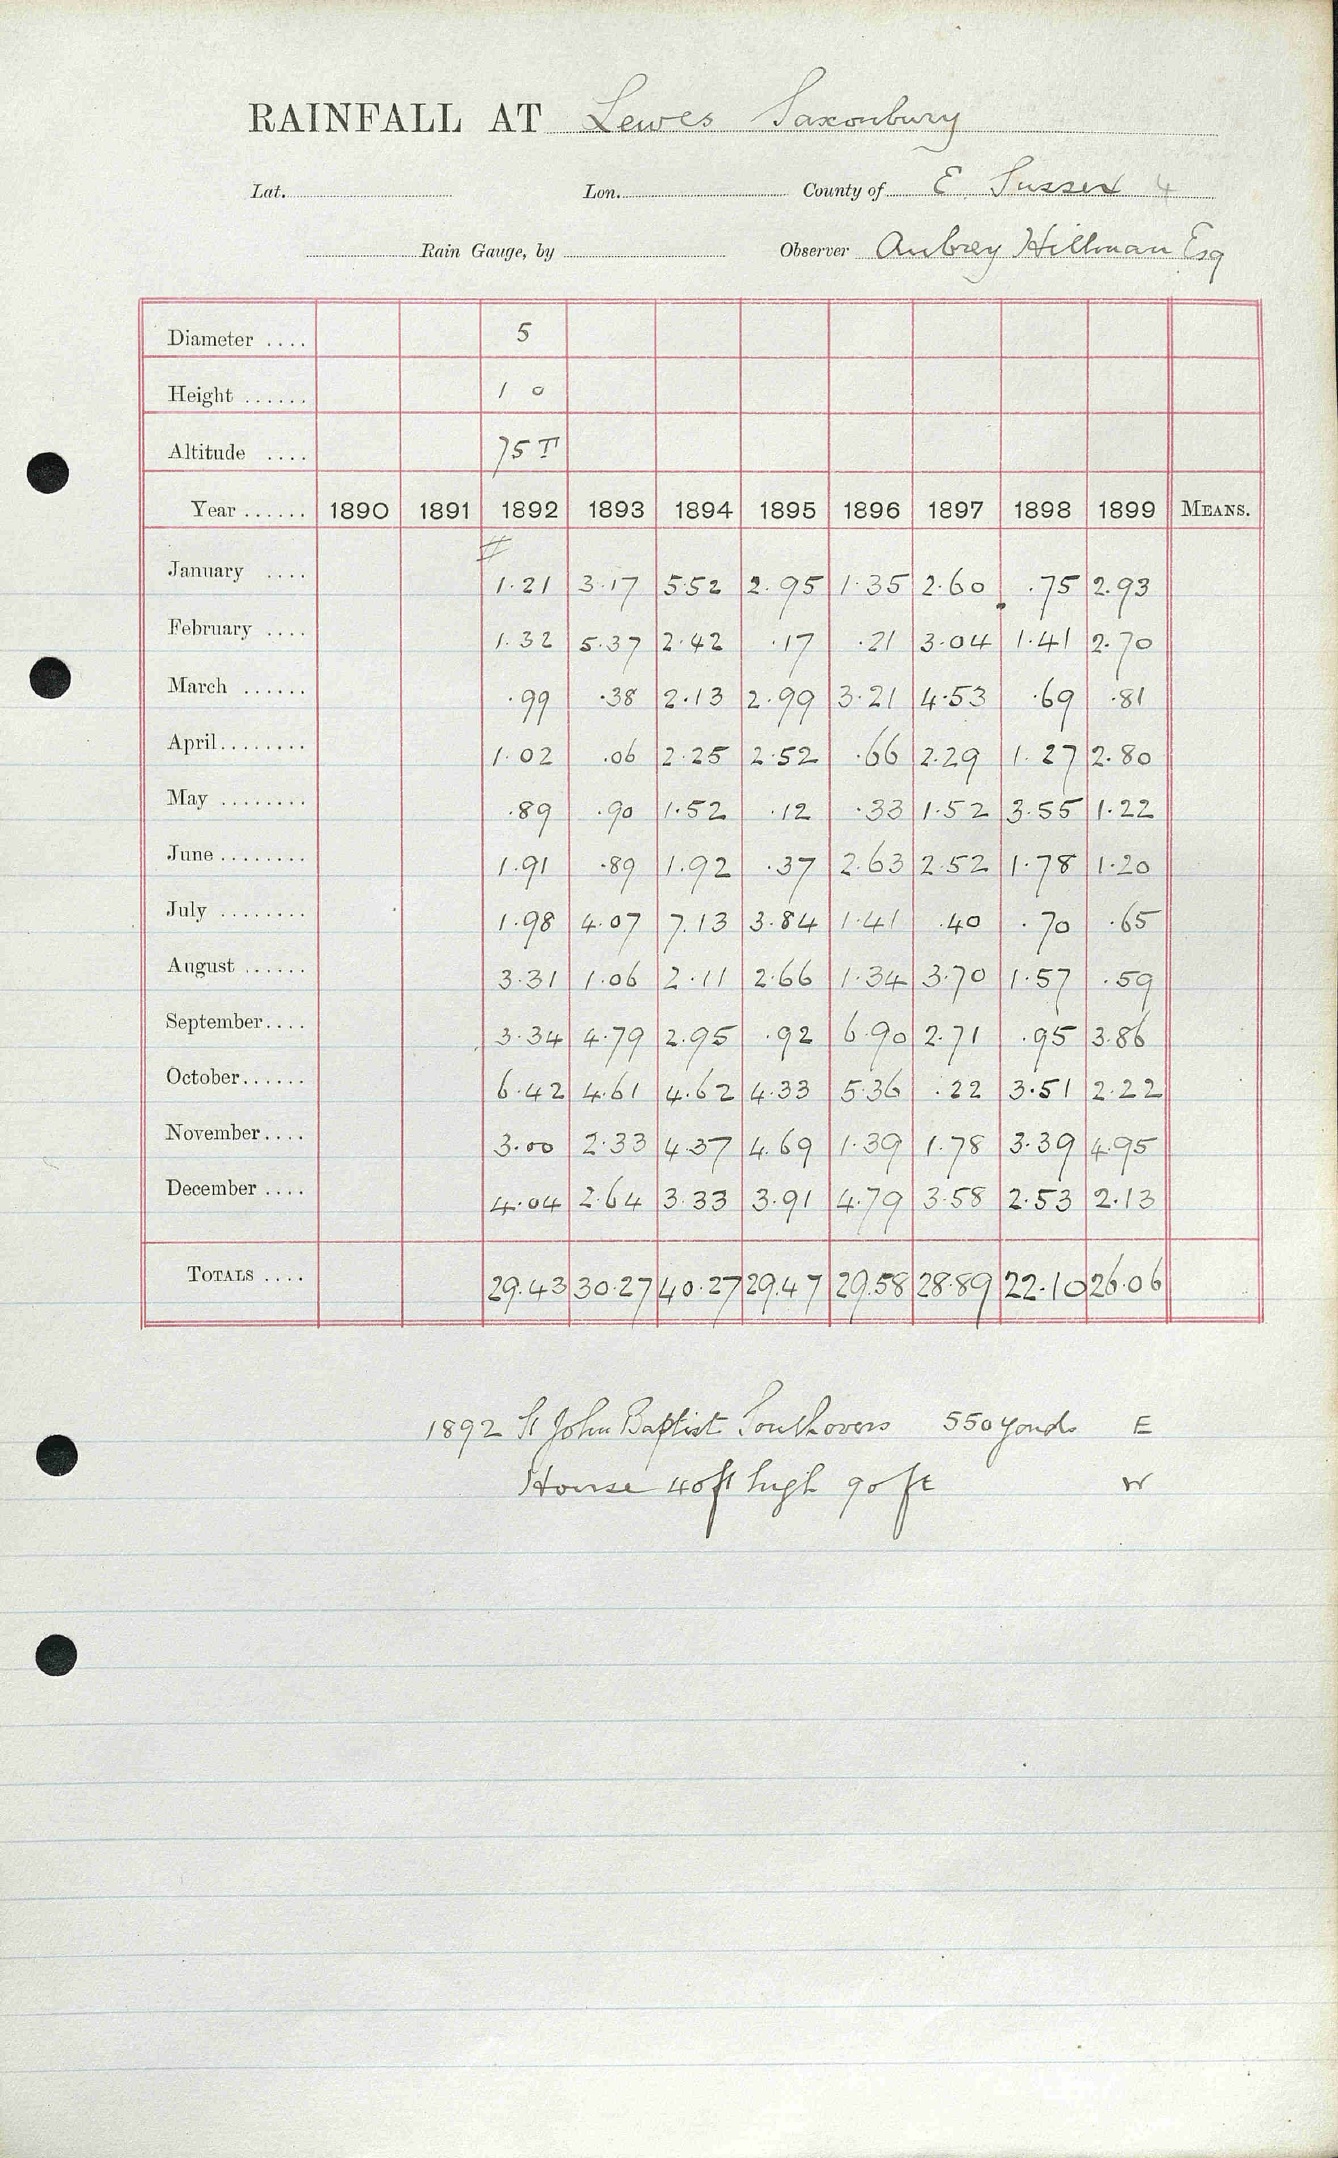 RAINFALL AT Lewes Saxonbury
Lat. Lon. County of E Sussex 4
Rain Gauge, by Observer Aubrey Hillman Esq
Diameter .... 5
Height ...... 1 0
Altitude .... 75 T
Year ...... 1890 1891 1892 1893 1894 1895 1896 1897 1898 1899 MEANS.
January .... 1.21 3.17 5.52 2.95 1.35 2.60 .75 2.93
February .... 1.32 5.37 2.42 .17 .21 3.04 1.41 2.70
March ...... .99 .38 2.13 2.99 3.21 4.53 .69 .81
April........ 1.02 .06 2.25 2.52 .66 2.29 1.27 2.80
May ........ .89 .90 1.52 .12 .33 1.52 3.55 1.22
June ........ 1.91 .89 1.92 .37 2.63 2.52 1.78 1.20
July ........ 1.98 4.07 7.13 3.84 1.41 .40 .70 .65
August ...... 3.31 1.06 2.11 2.66 1.34 3.70 1.57 .59
September.... 3.34 4.79 2.95 .92 6.90 2.71 .95 3.86
October...... 6.42 4.61 4.62 4.33 5.36 .22 3.51 2.22
November.... 3.00 2.33 4.37 4.69 1.39 1.78 3.39 4.95
December .... 4.04 2.64 3.33 3.91 4.79 3.58 2.53 2.13
TOTALS .... 29.43 30.27 40.27 29.47 29.58 28.89 22.10 26.06
1892 St John Baptist Southovers 550 yards E
House 40ft high 90 ft W